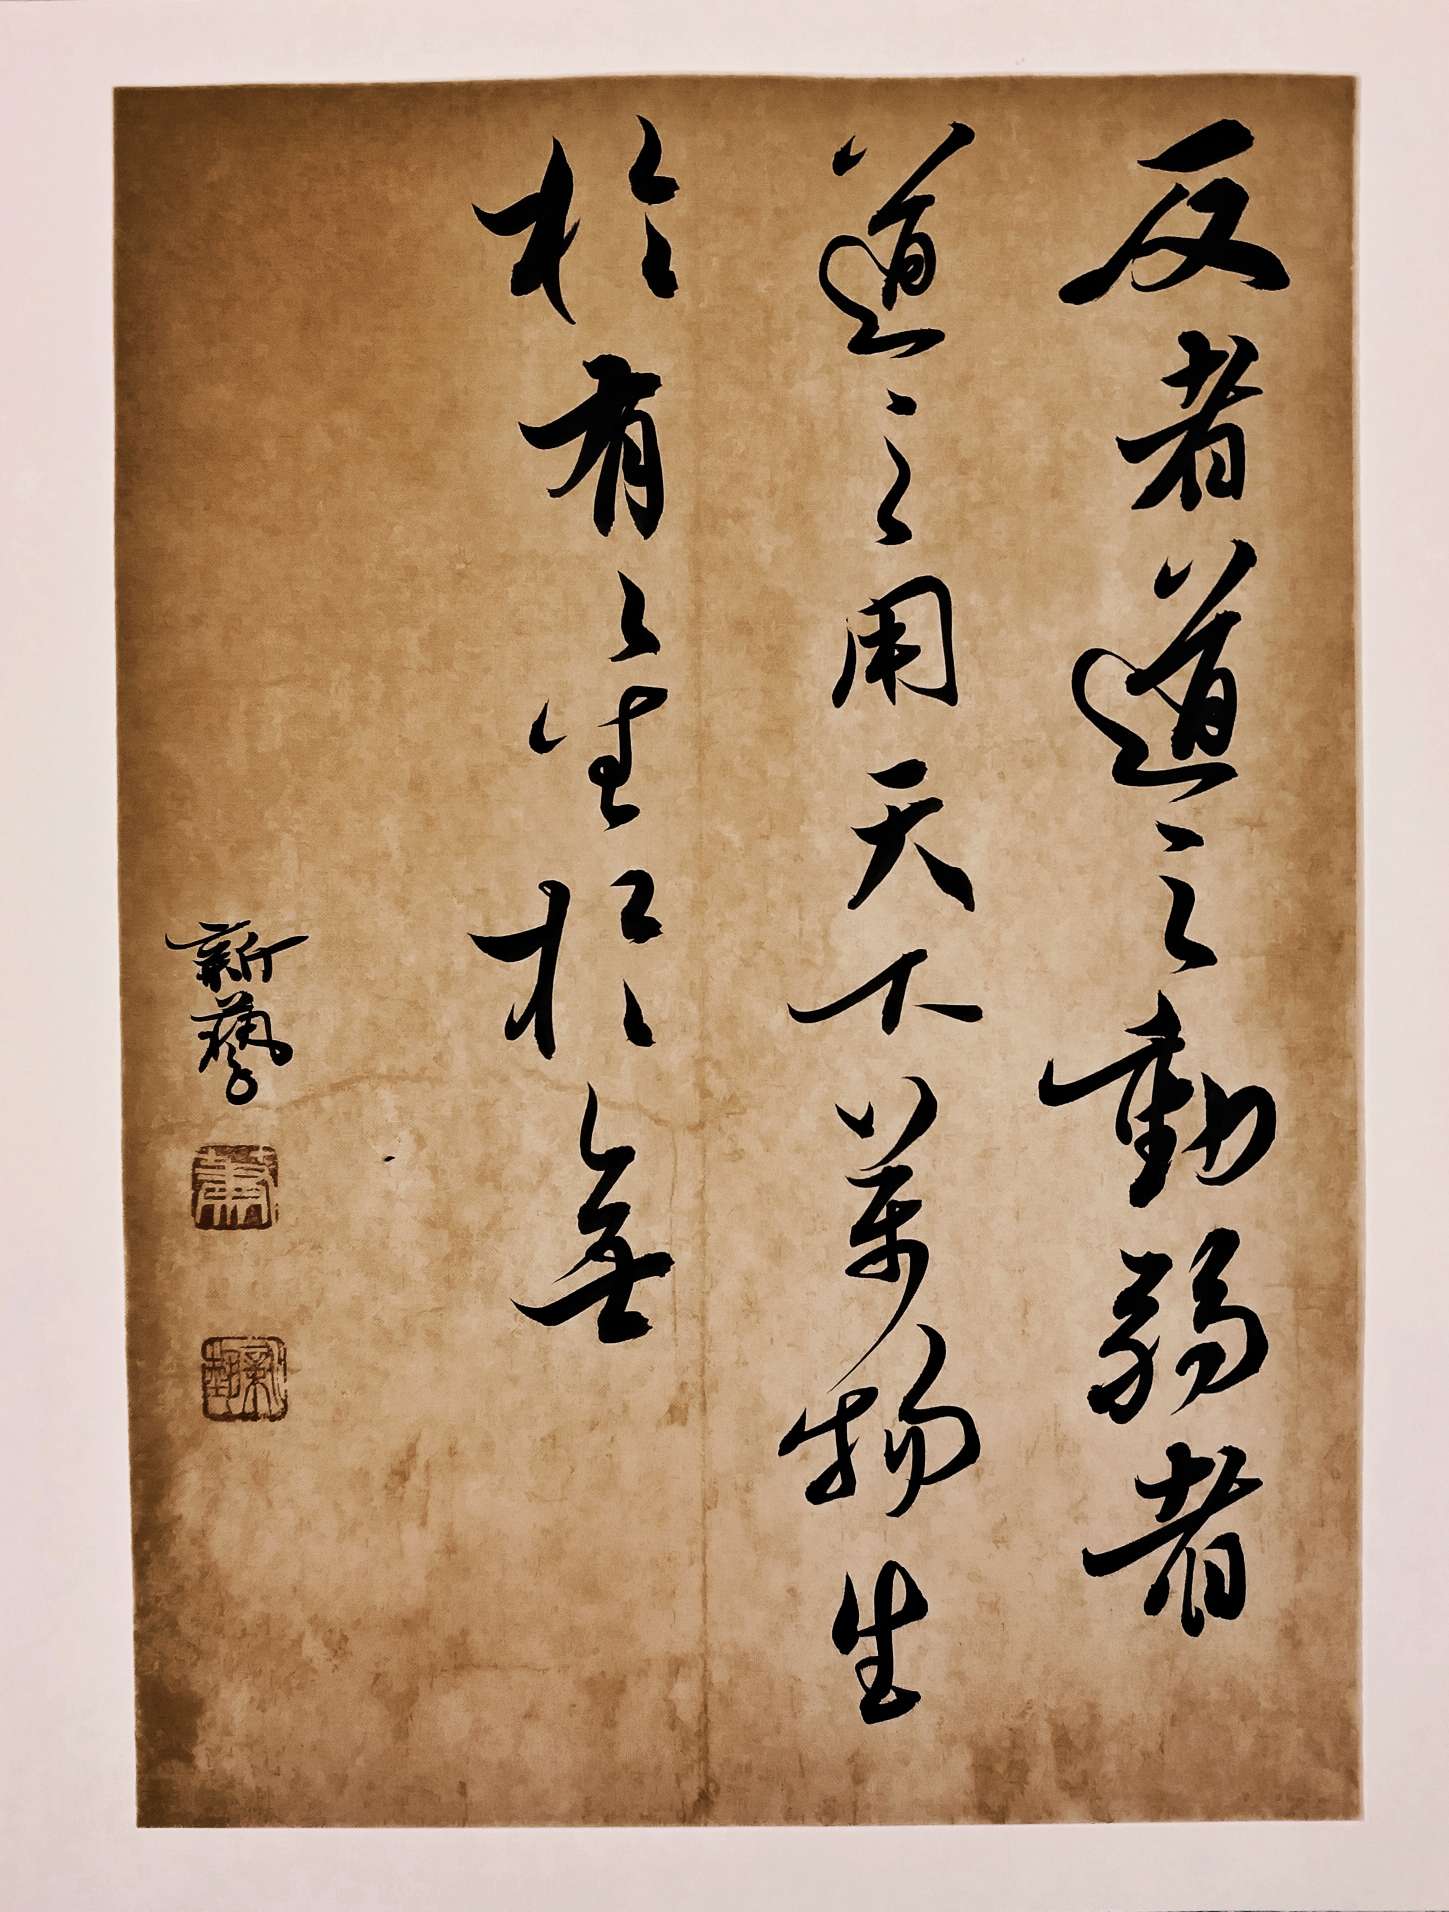 反者道之動弱者
道之用天下萬物生
於有々生於無
新藝